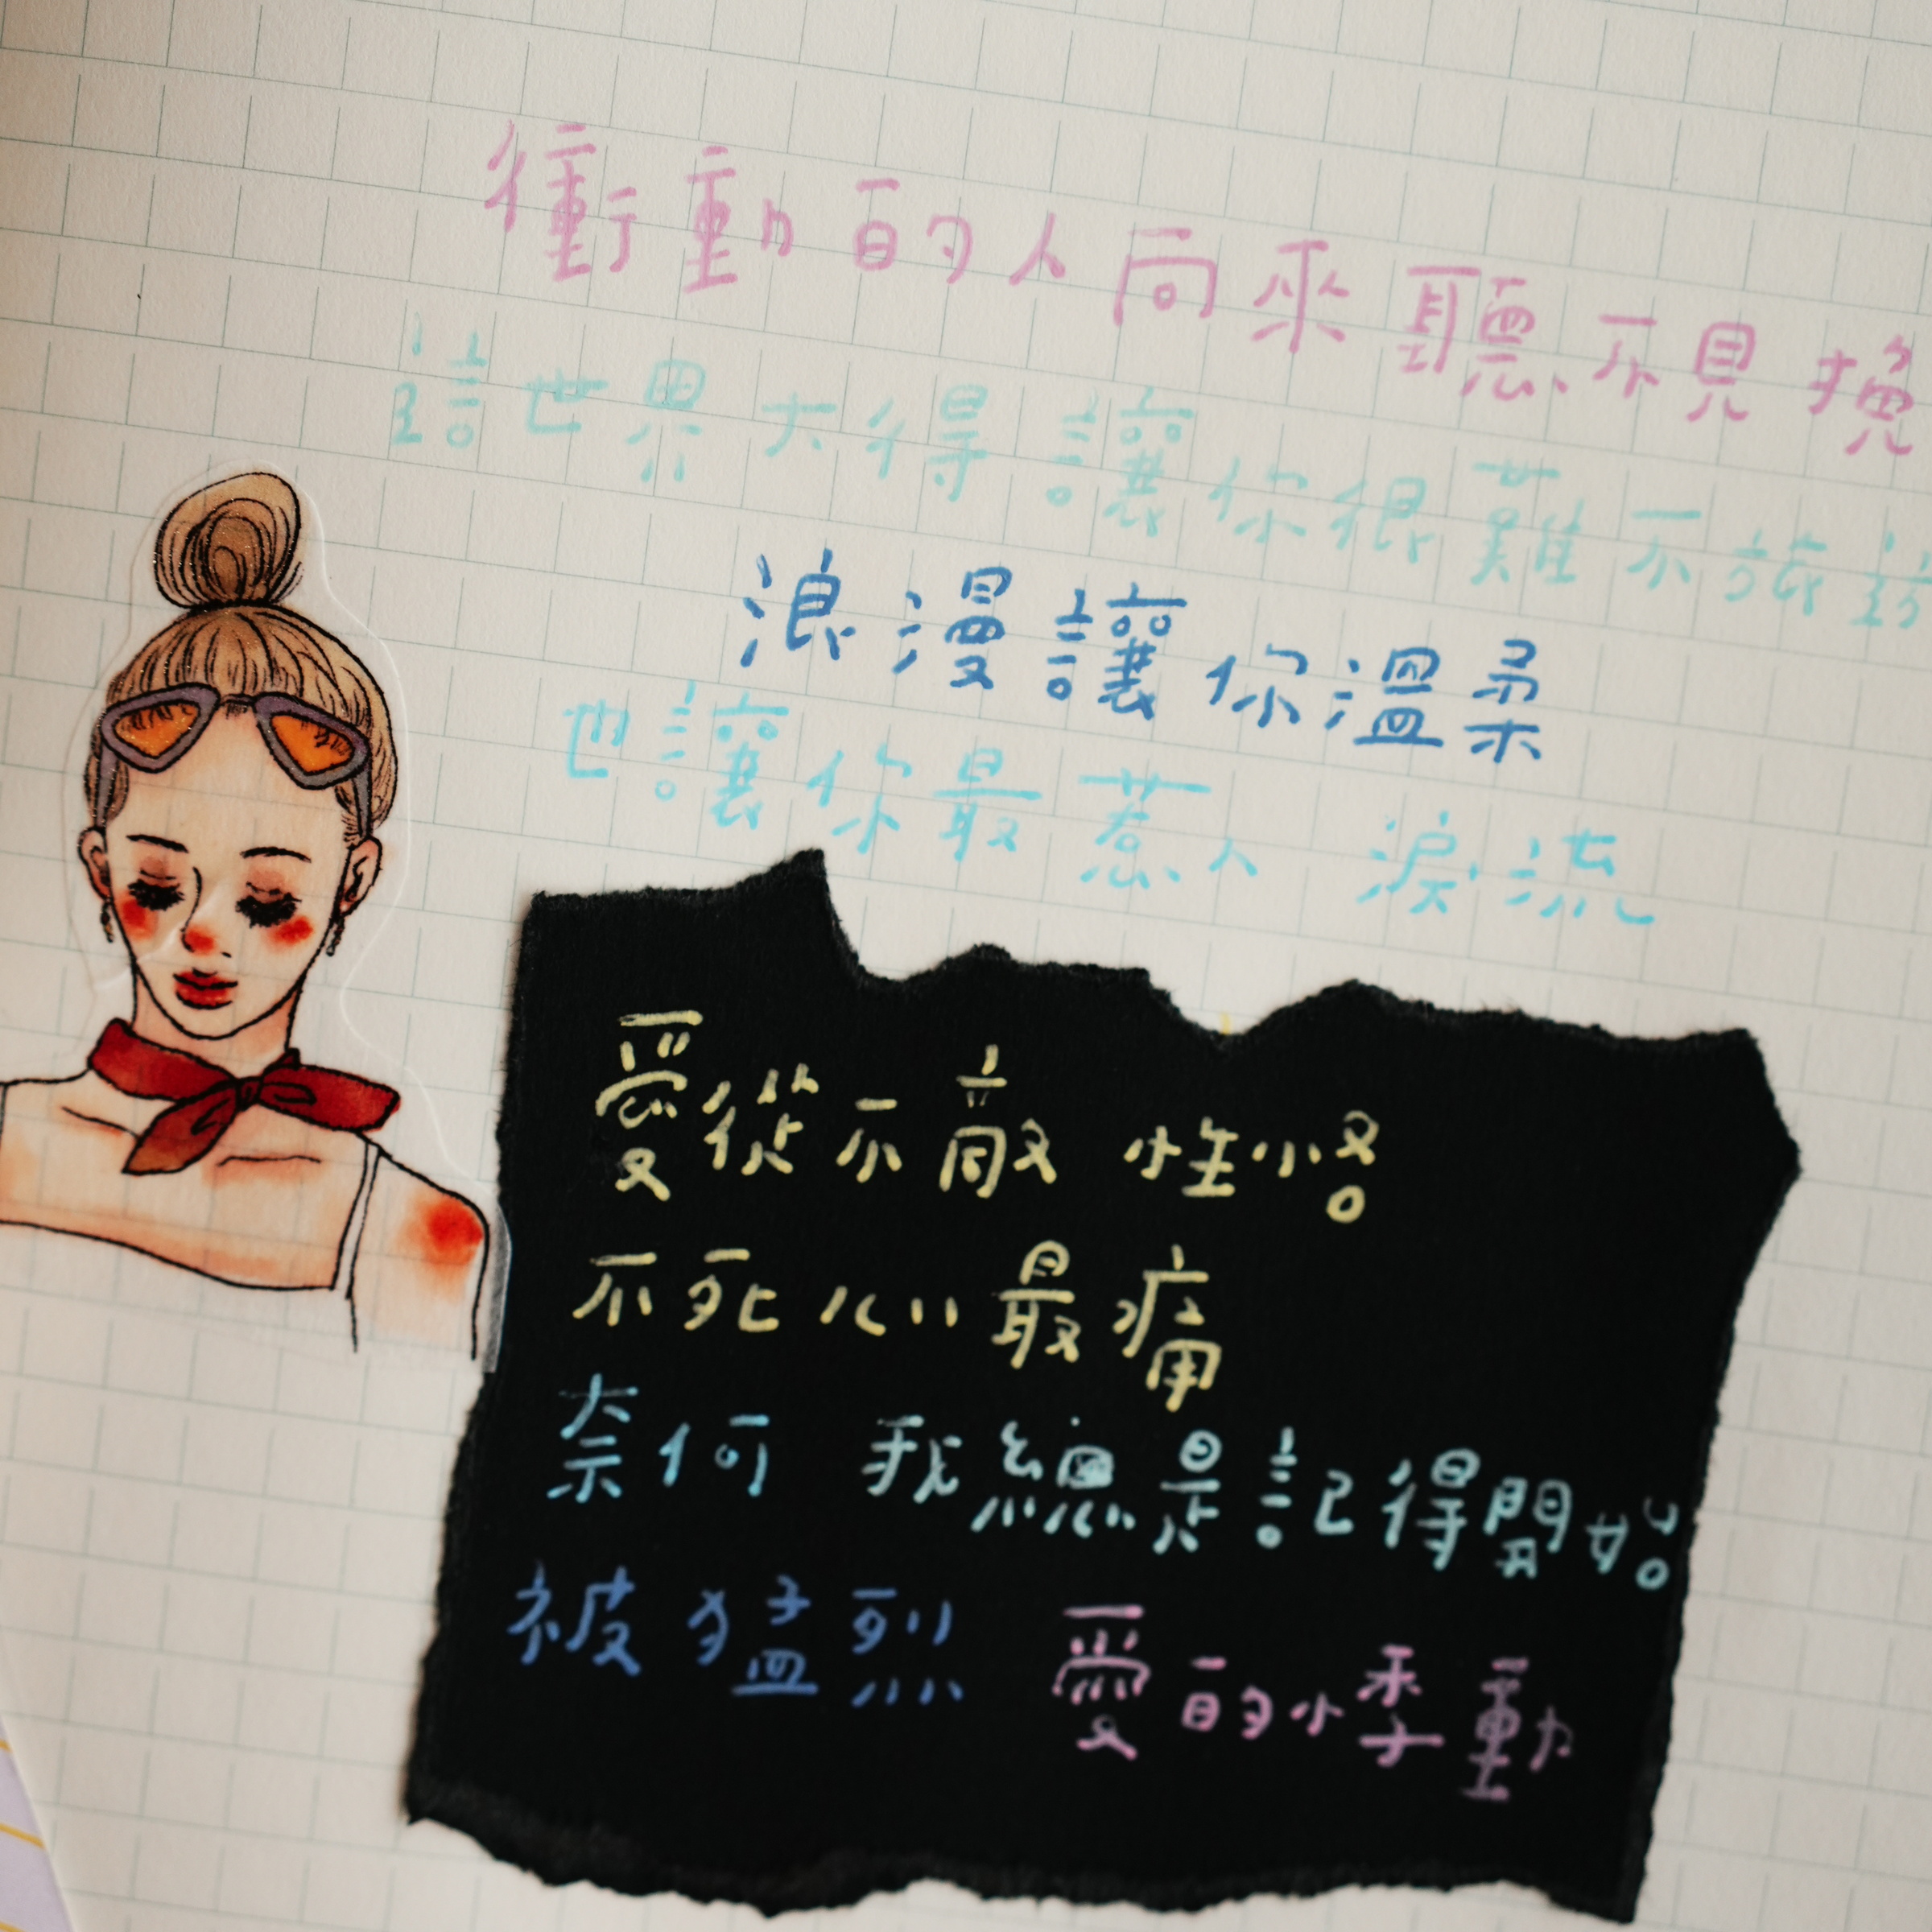 衝動的人向來聽不見挽
這世界大得讓你很難不旅遊
浪漫讓你溫柔
也讓你最惹人 淚流
愛從不敵 性格
不死心最痛
奈何 我總是記得開始
被猛烈 愛的悸動